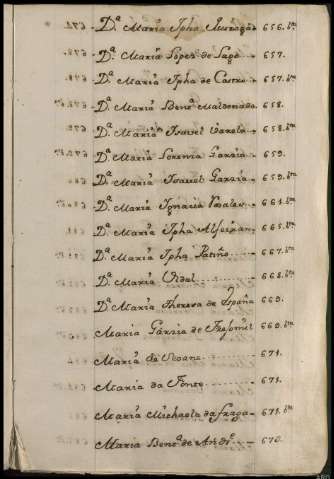 D.ª Maria Jpha 656. b.to
D.ª Maria Lopez de 657.
D.ª Maria Jpha de Castro 657. b.to
D.ª Maria Ben.ta Maldonado 658.
D.ª Maria Isavel Varela 658. b.to
D.ª Maria Lorenza Garzia 659.
D.ª Maria Isavel Garzia 659. b.to
D.ª Maria Ignacia 661. b.to
D.ª Maria Jpha 665. b.to
D.ª Maria Jpha Patiño 667. b.to
D.ª Maria Vidal 668. b.to
D.ª Maria Theresa de España 669.
Maria Garzia de 669. b.to
Maria de Seoane 671.
Maria da Ponte 671.
Maria Michaela da fraga 671. b.to
Maria Ben.ta de 670.